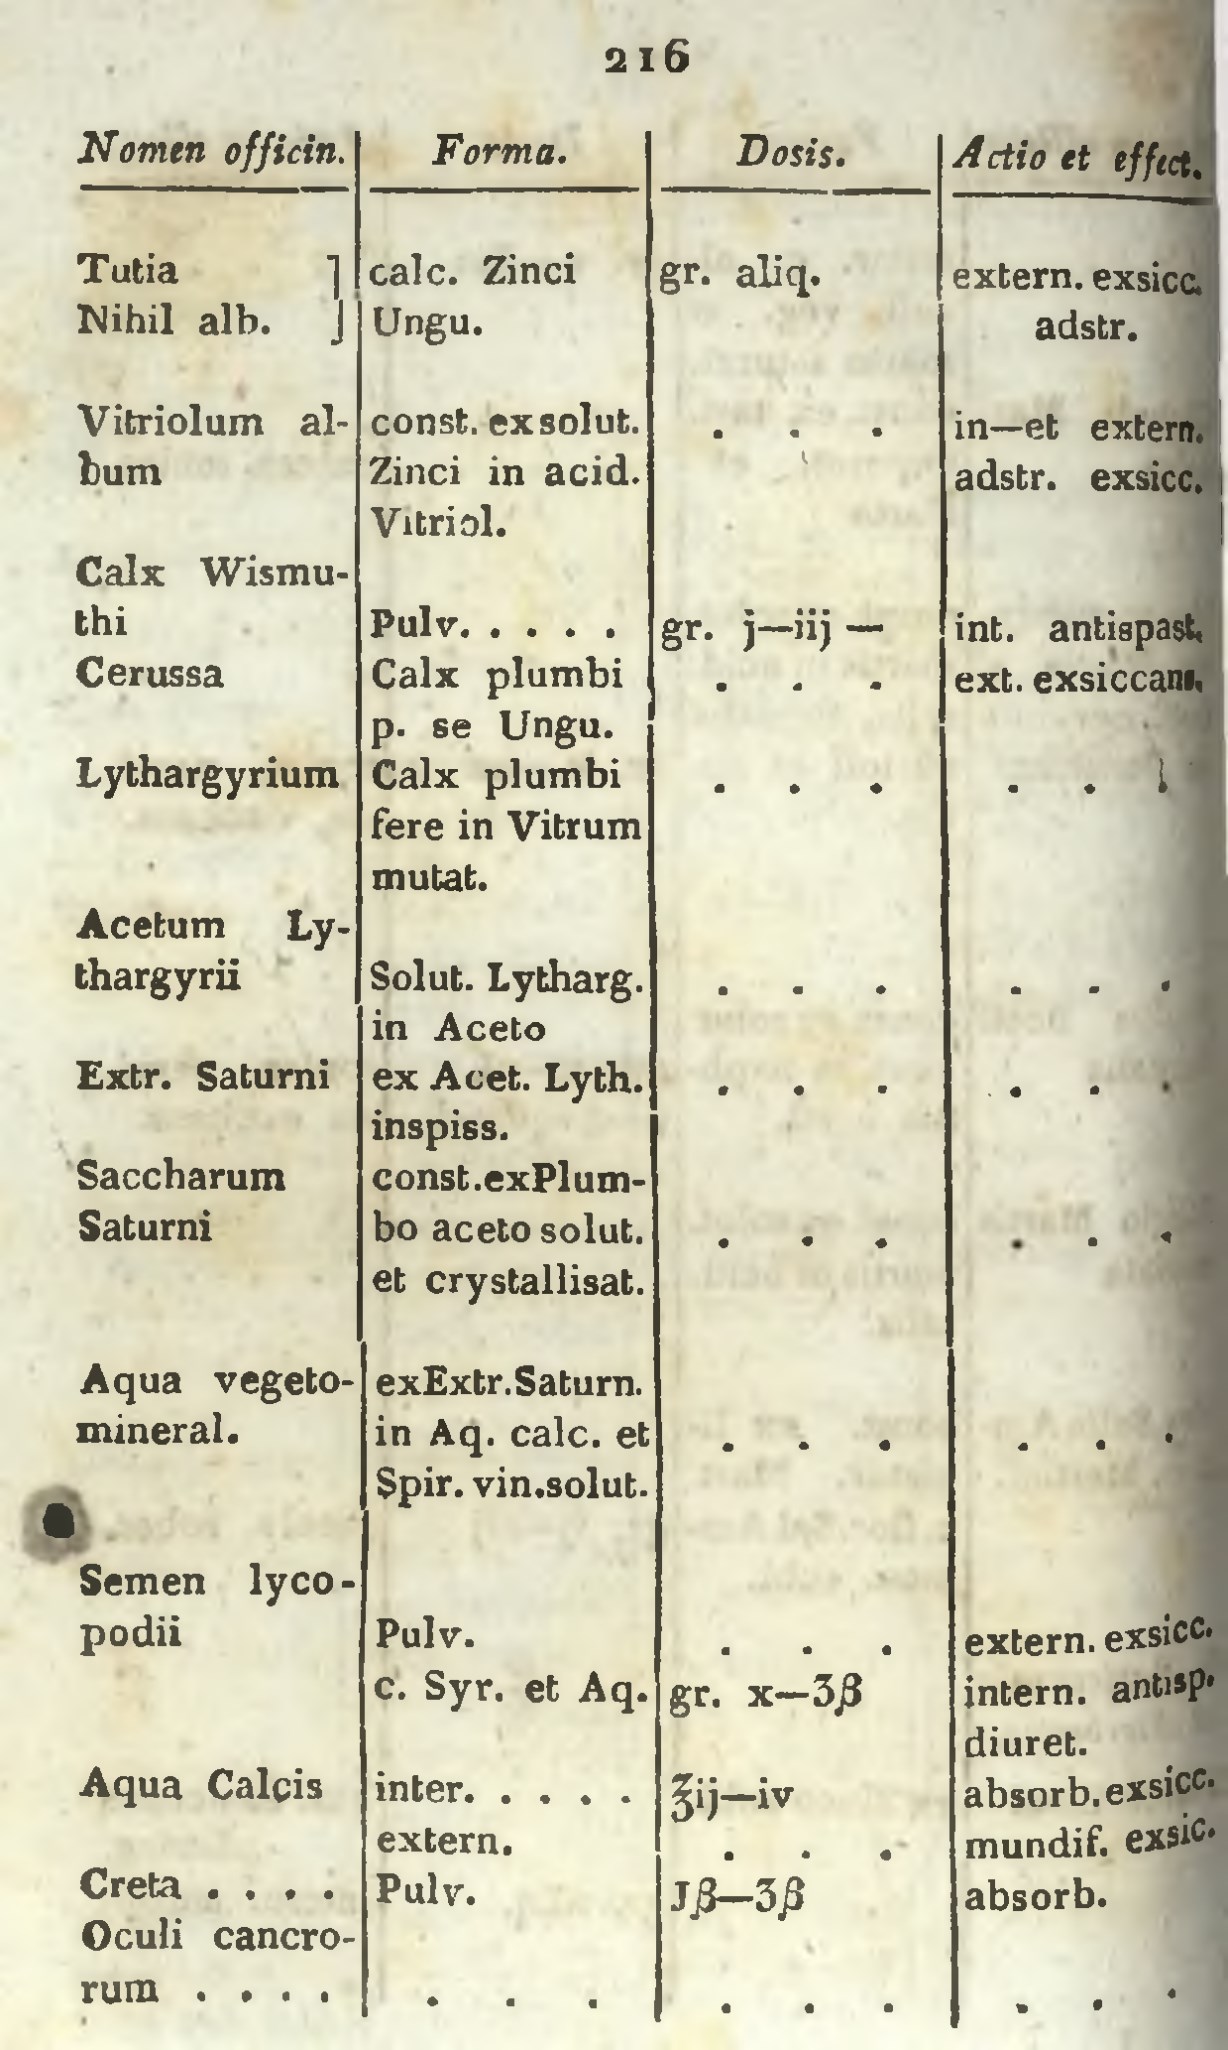 216
Nomen officin. Forma. Dosis. Actio et effect.
Tutia ] calc. Zinci gr. aliq. extern. exsicc.
Nihil alb. J Ungu. adstr.
Vitriolum al- const. ex solut. . . . in—et extern.
bum Zinci in acid. adstr. exsicc.
Vitriol.
Calx Wismu-
thi Pulv. . . . . gr. j—iij — int. antispast.
Cerussa Calx plumbi . . . ext. exsiccans.
p. se Ungu.
Lythargyrium Calx plumbi . . . . . .
fere in Vitrum
mutat.
Acetum Ly-
thargyrii Solut. Lytharg. . . . . . .
in Aceto
Extr. Saturni ex Acet. Lyth. . . . . . .
inspiss.
Saccharum const.exPlum-
Saturni bo aceto solut. . . . . . .
et crystallisat.
Aqua vegeto- exExtr.Saturn.
mineral. in Aq. calc. et . . . . . .
Spir. vin.solut.
Semen lyco-
podii Pulv. . . . extern. exsicc.
c. Syr. et Aq. gr. x—ʒβ intern. antisp.
diuret.
Aqua Calcis inter. . . . . ℥ij—iv absorb. exsicc.
extern. . . . mundif. exsic.
Creta . . . . Pulv. Jβ—ʒβ absorb.
Oculi cancro-
rum . . . . . . . . . . . . .